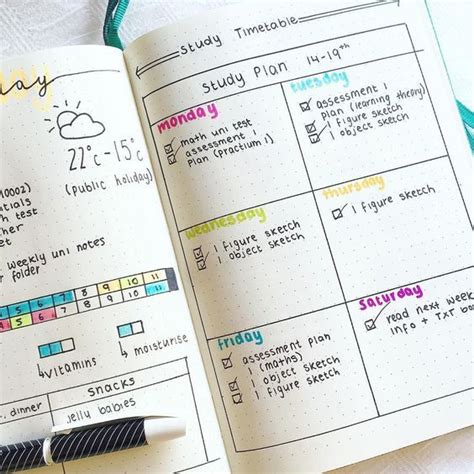 ay
22°c - 15°c
(public holiday)
0002)
entials
h test
her
et
weekly uni notes
r folder
5 6 7 8 9 10 11
4 5 6 7 8 9 10 11
vitamins
moisturise
snacks
dinner
jelly babies
Study Timetable
Study Plan 14-19th
monday
math uni test
assessment 1
plan (practium 1)
tuesday
assessment 1
plan (learning theory)
1 figure sketch
1 object sketch
wednesday
1 figure sketch
1 object sketch
thursday
1 figure sketch
friday
assessment plan
1 (maths)
1 object sketch
1 figure sketch
saturday
read next week
info + TXT bo